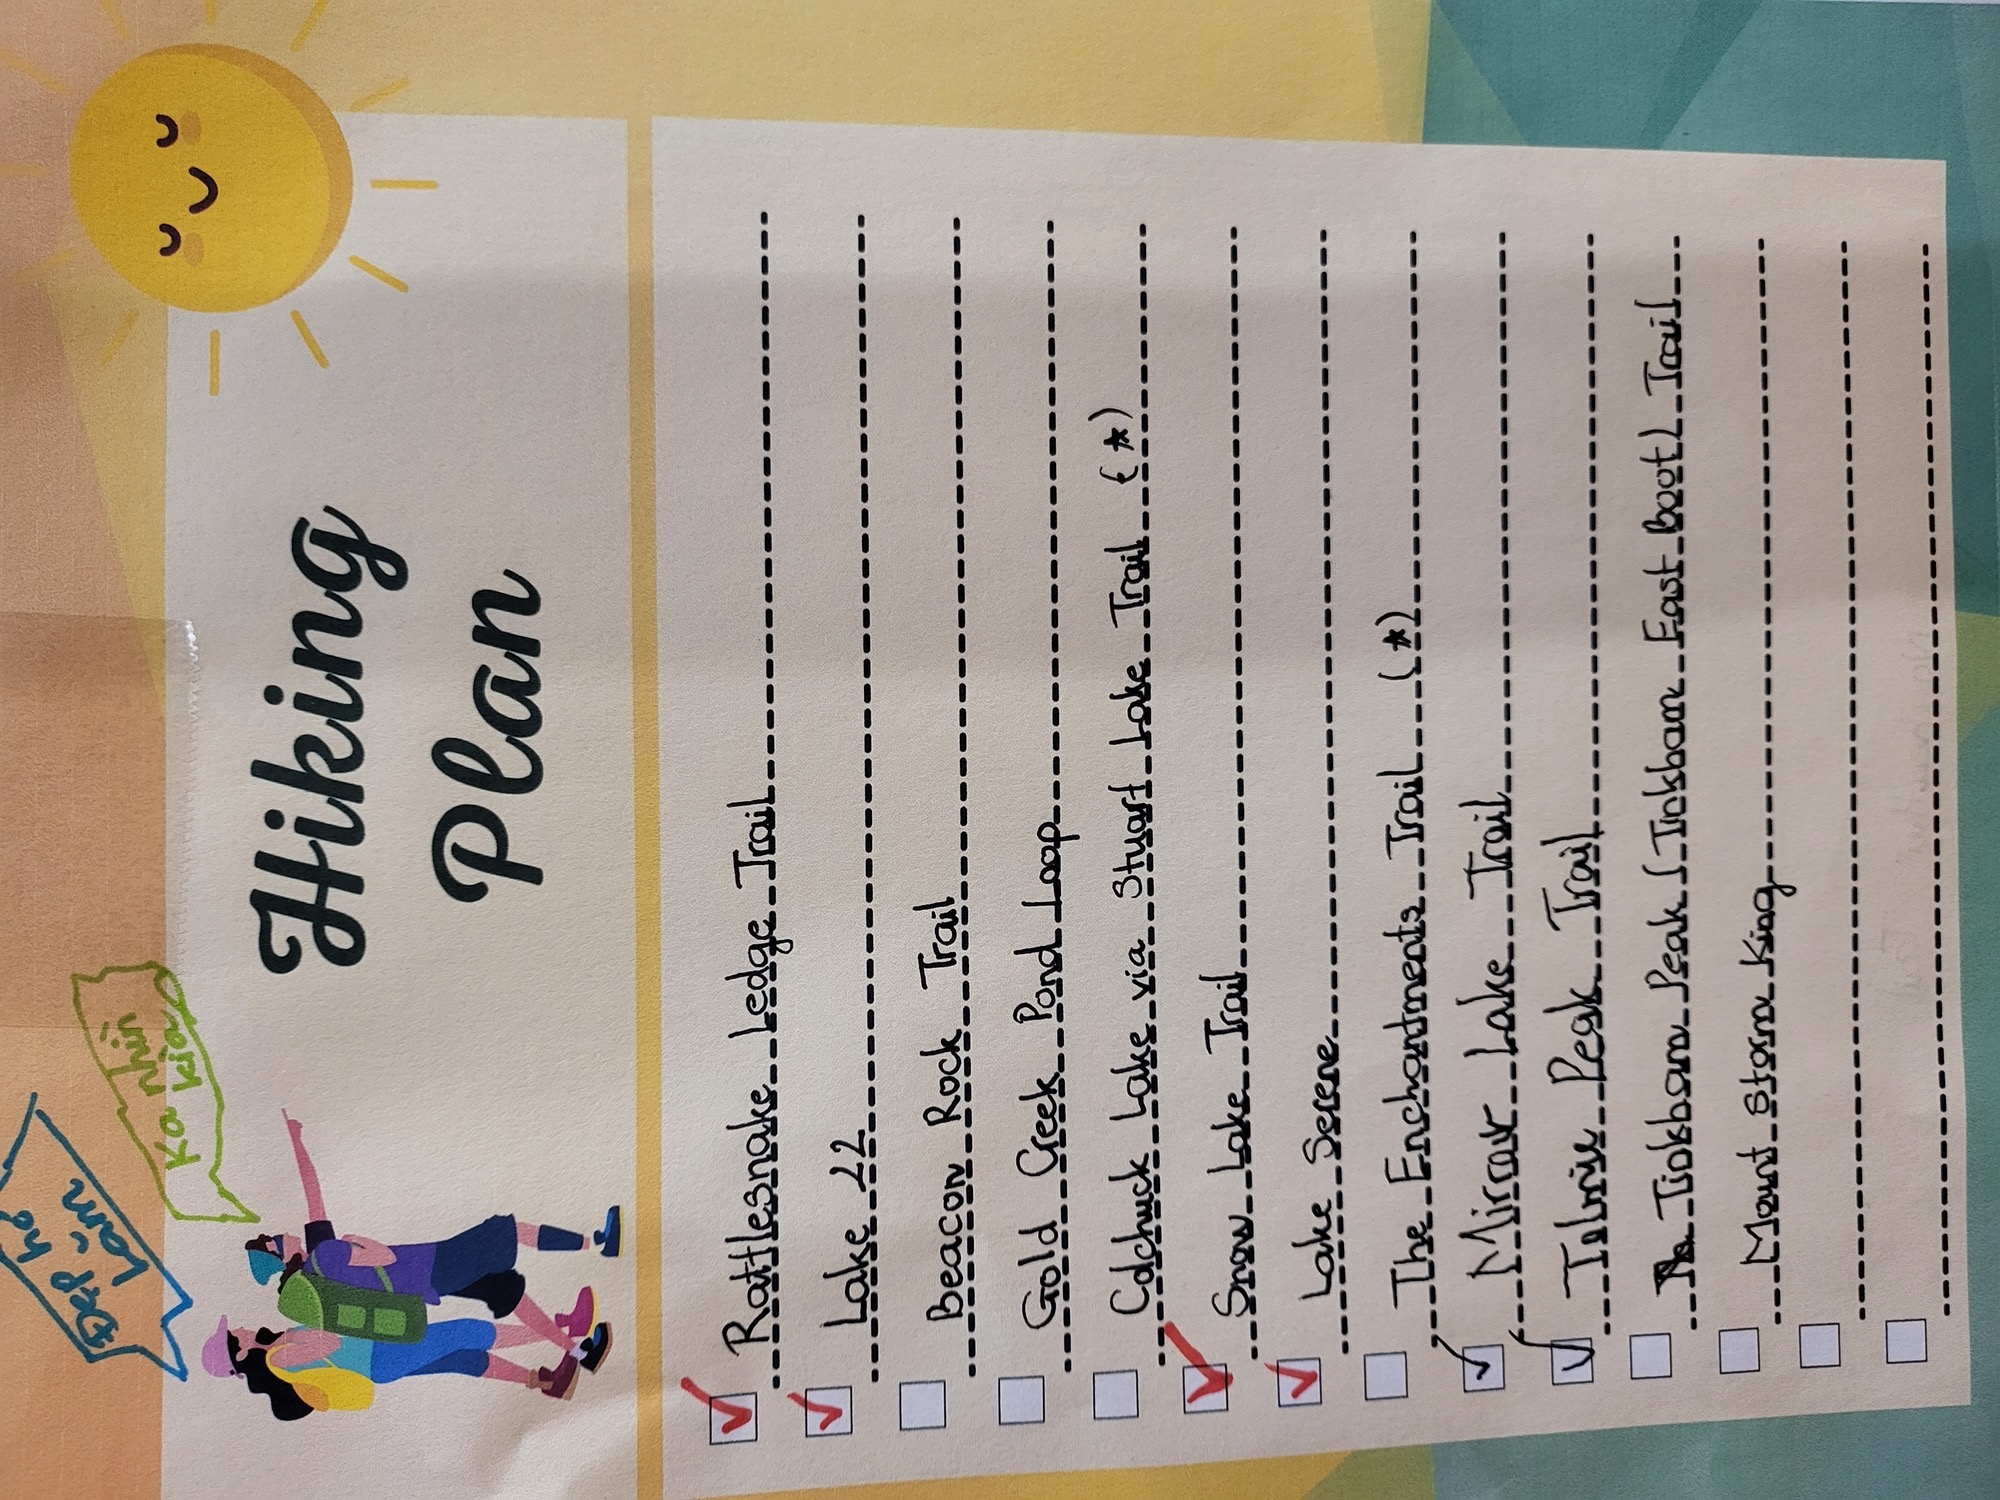 Đẹp hả
Lắm
Ka nhìn
Ka kìa
Hiking
Plan
Rattlesnake Ledge Trail
Lake 22
Beacon Rock Trail
Gold Creek Pond Loop
Colchuck Lake via Stuart Lake Trail (*)
Snow Lake Trail
Lake Serene
The Enchantments Trail (*)
Mirror Lake Trail
Peak Trail
Tinkham Peak (Tinkham East Boot) Trail
Mount Storm King